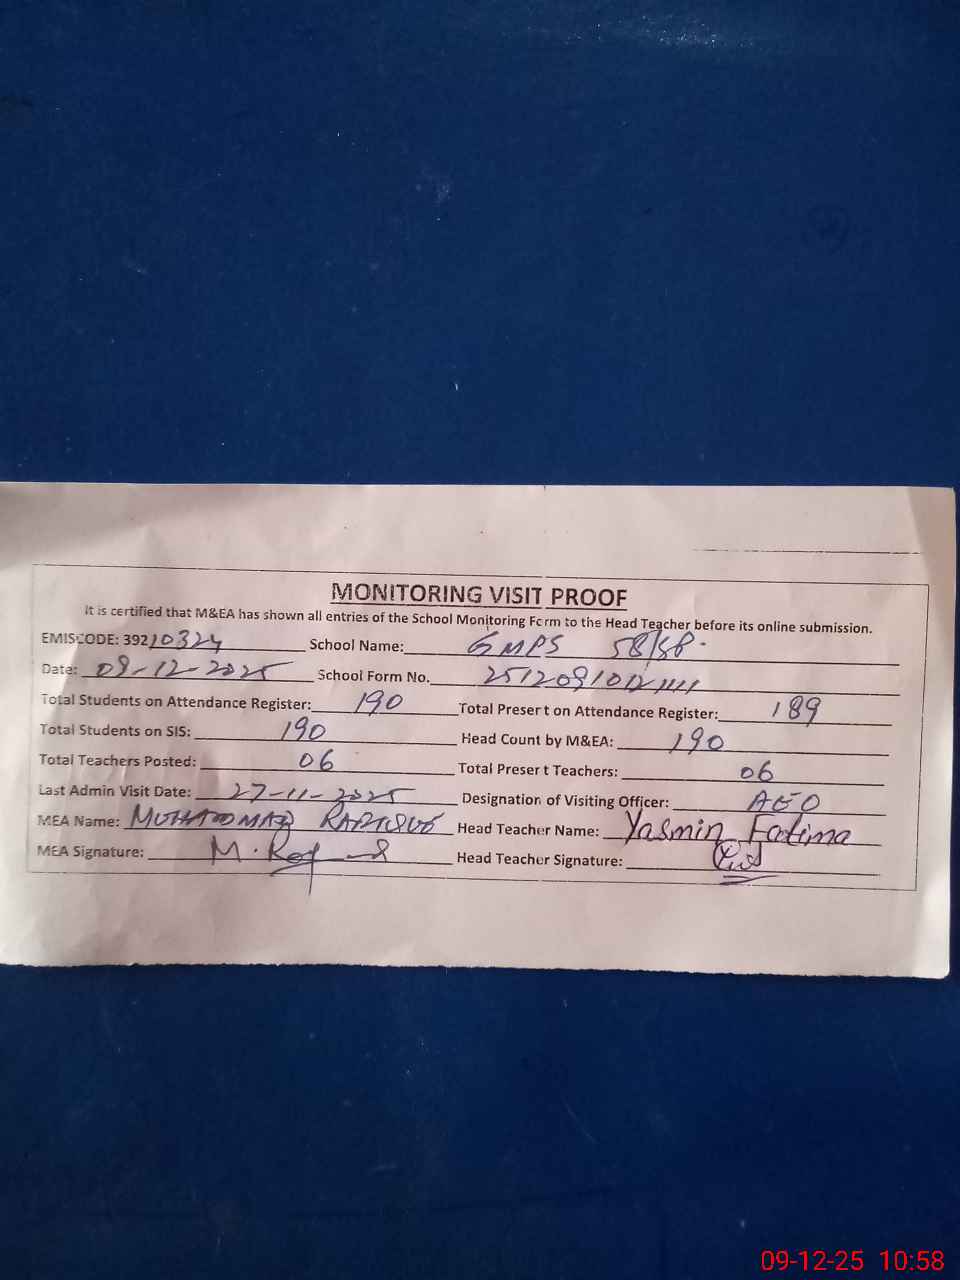 MONITORING VISIT PROOF
It is certified that M&EA has shown all entries of the School Monitoring Form to the Head Teacher before its online submission.
EMISCODE: 39210324 School Name: GMPS 58/SP.
Date: 09-12-2025 School Form No.
Total Students on Attendance Register: 190 Total Present on Attendance Register: 189
Total Students on SIS: 190 Head Count by M&EA: 190
Total Teachers Posted: 06 Total Present Teachers: 06
Last Admin Visit Date: 27-11-2025 Designation of Visiting Officer: AEO
MEA Name: MUHAMMAD Head Teacher Name: Yasmin Fatima
MEA Signature: Head Teacher Signature:
09-12-25 10:58